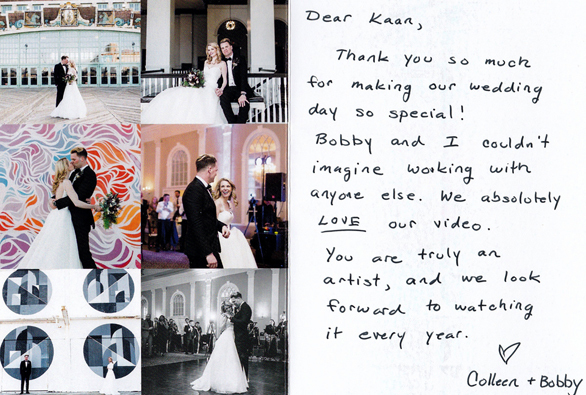 Dear Kaan,
Thank you so much
for making our wedding
day so special!
Bobby and I couldn't
imagine working with
anyone else. We absolutely
LOVE our video.
You are truly an
artist, and we look
forward to watching
it every year.
Colleen + Bobby